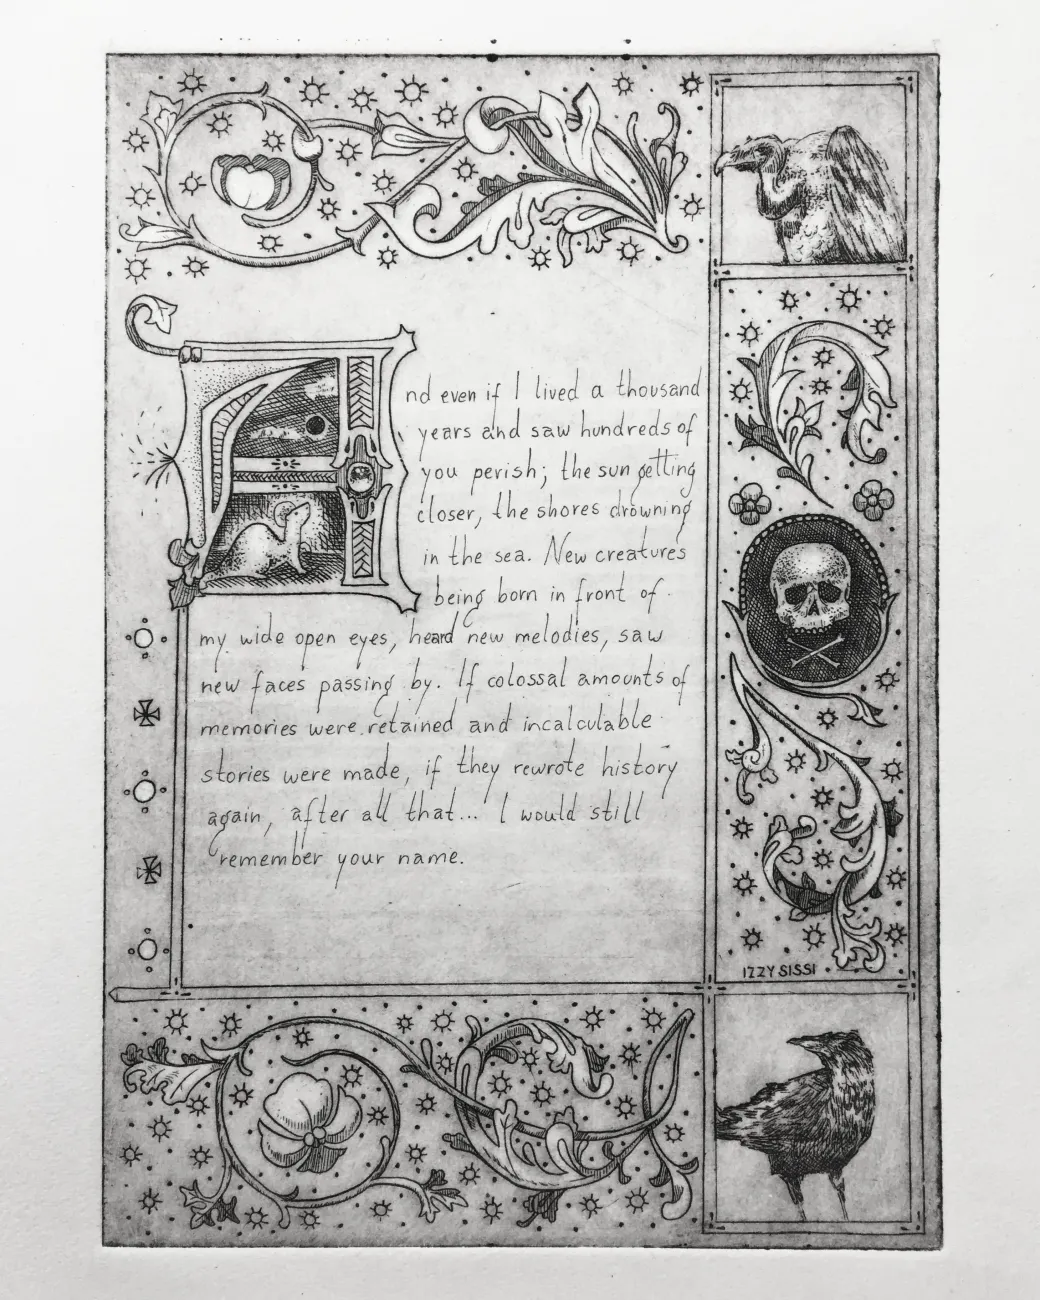 And even if I lived a thousand
years and saw hundreds of
you perish; the sun getting
closer, the shores drowning
in the sea. New creatures
being born in front of
my wide open eyes, heard new melodies, saw
new faces passing by. If colossal amounts of
memories were retained and incalculable
stories were made, if they rewrote history
again, after all that... I would still
remember your name.
IZZY SISSI